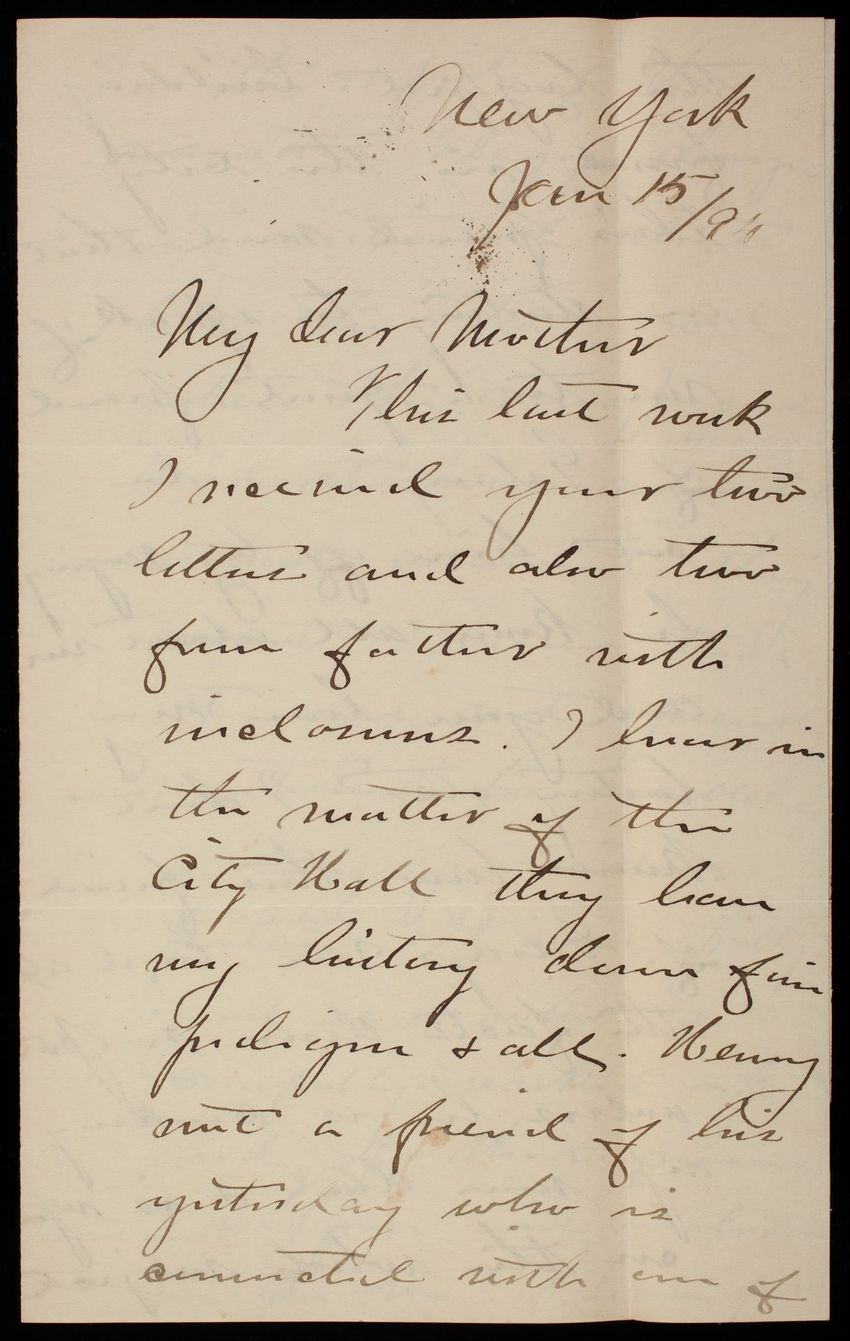 New York
Jan 15/9
My dear Mother
This last week
I received your two
letters and also two
from father with
inclosures. I hear in
the matter of the
City Hall they have
my history down fine
pedigree & all. Henry
met a friend of his
yesterday who is
connected with one of